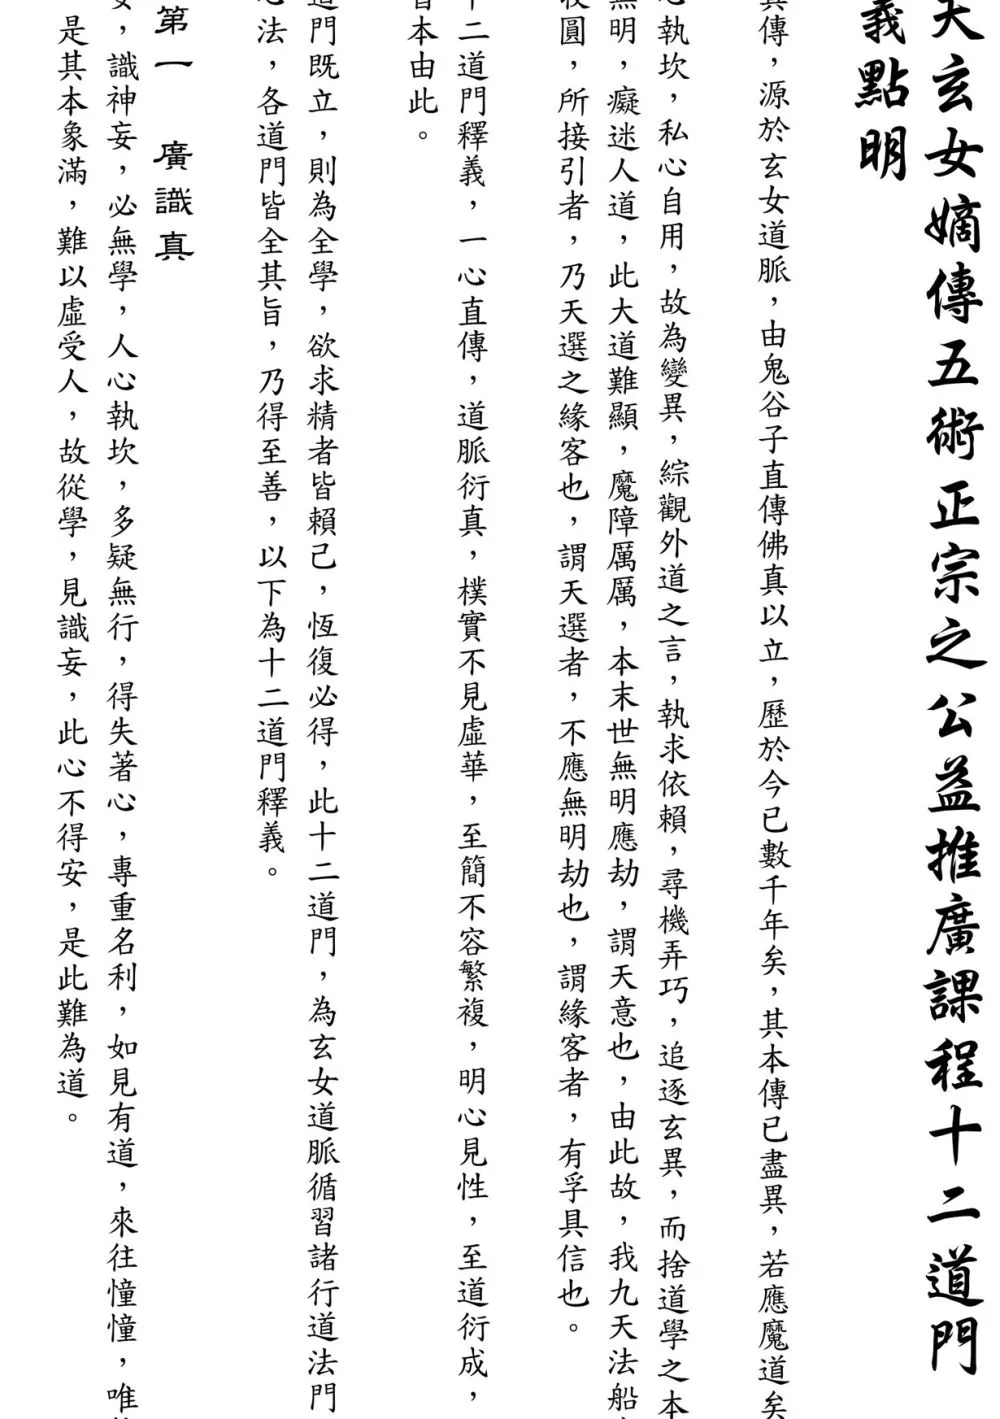 天玄女嫡傳五術正宗之公益推廣課程十二道門
義點明
真傳，源於玄女道脈，由鬼谷子直傳佛真以立，歷於今已數千年矣，其本傳已盡異，若應魔道矣
心執坎，私心自用，故為變異，綜觀外道之言，執求依賴，尋機弄巧，追逐玄異，而捨道學之本
無明，癡迷人道，此大道難顯，魔障厲厲，本末世無明應劫，謂天意也，由此故，我九天法船
收圓，所接引者，乃天選之緣客也，謂天選者，不應無明劫也，謂緣客者，有孚具信也。
十二道門釋義，一心直傳，道脈衍真，樸實不見虛華，至簡不容繁複，明心見性，至道衍成，
皆本由此。
道門既立，則為全學，欲求精者皆賴己，恆復必得，此十二道門，為玄女道脈循習諸行道法門
心法，各道門皆全其旨，乃得至善，以下為十二道門釋義。
第一　廣識真
妄，識神妄，必無學，人心執坎，多疑無行，得失著心，專重名利，如見有道，來往憧憧，唯
是其本象滿，難以虛受人，故從學，見識妄，此心不得安，是此難為道。